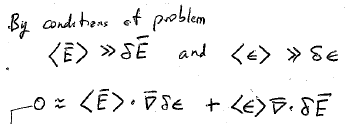 By conditions of problem
⟨Ē⟩ ≫ δĒ and ⟨ϵ⟩ ≫ δϵ
0 ≈ ⟨Ē⟩ · ∇̄ δϵ + ⟨ϵ⟩ ∇̄ · δĒ